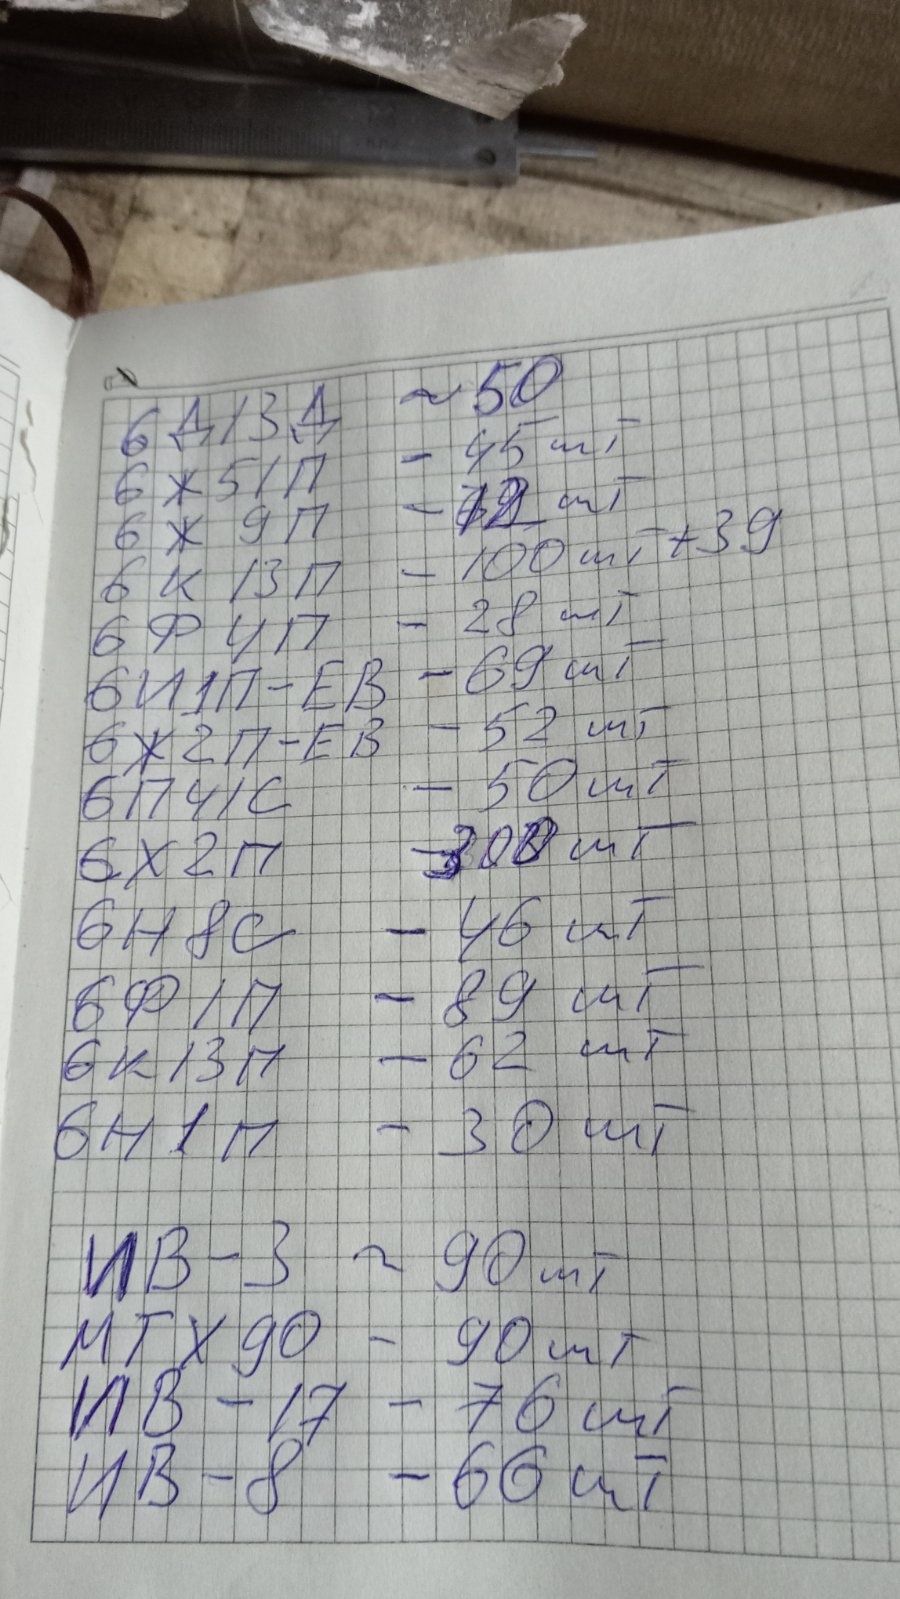 6Д13Д ~ 50
6Ж51П - 45 шт
6Ж9П - шт
6К13П - 100 шт + 39
6Ф4П - 28 шт
6И1П-ЕВ - 69 шт
6Ж2П-ЕВ - 52 шт
6П41С - 50 шт
6Х2П - шт
6Н8С - 46 шт
6Ф1П - 89 шт
6К13П - 62 шт
6Н1П - 30 шт
ИВ-3 ~ 90 шт
МТХ90 - 90 шт
ИВ-17 - 76 шт
ИВ-8 - 66 шт